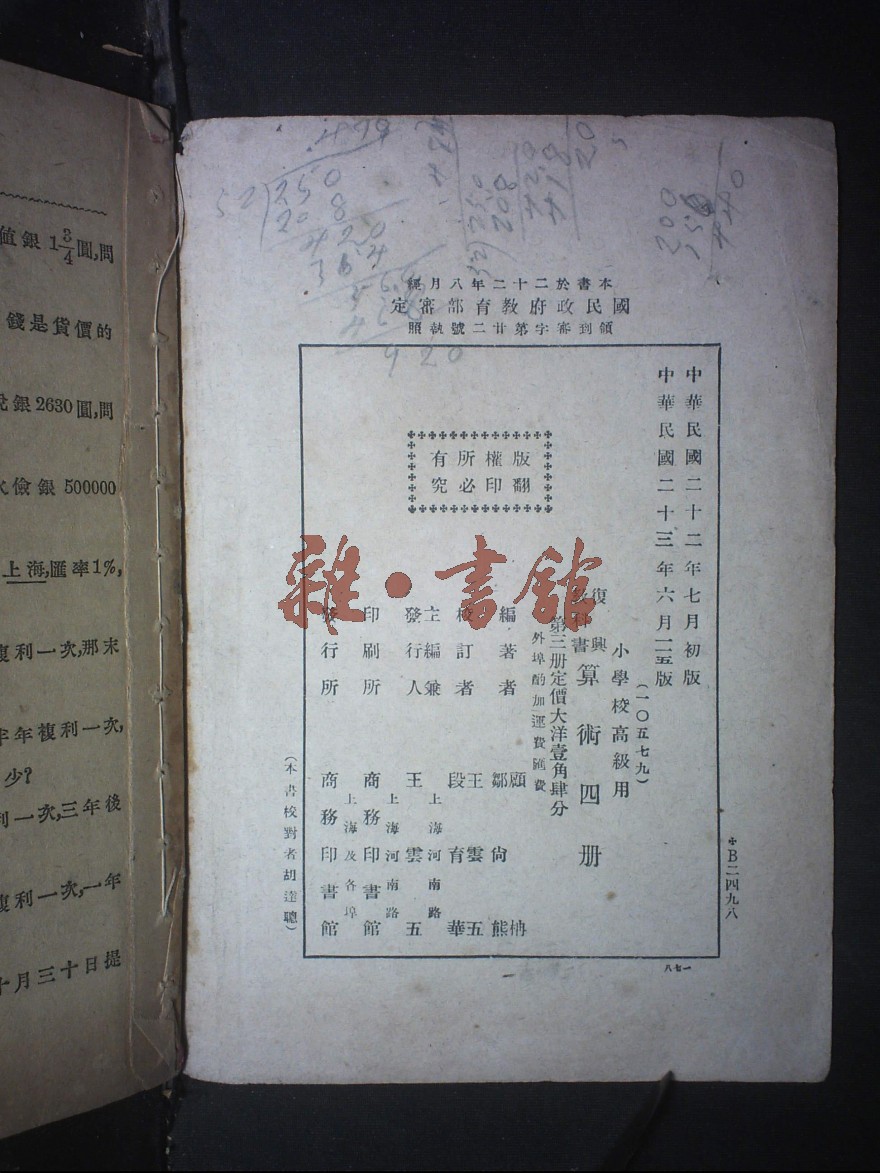 本書於二十二年八月經
國民政府教育部審定
領到審字第廿二號執照
中華民國二十二年七月初版
中華民國二十三年六月一五版
(一〇五七九)
小學校高級用
復興
教科書
算術四册
第三册定價大洋壹角肆分
外埠酌加運費匯費
版權所有
翻印必究
編著者 顧枏
鄒尚熊
校訂者 王雲五
段育華
主編兼
發行人
上海河南路
王雲五
印刷所
上海河南路
商務印書館
發行所
上海及各埠
商務印書館
(本書校對者胡達聰)
B二四九六
一七八
雜·書館
值銀1¾圓,問
錢是貨價的
銀2630圓,問
儉銀500000
上海,匯率1%,
複利一次,那末
年年複利一次,
少?
利一次,三年後
複利一次,一年
十月三十日提
52
250
208
420